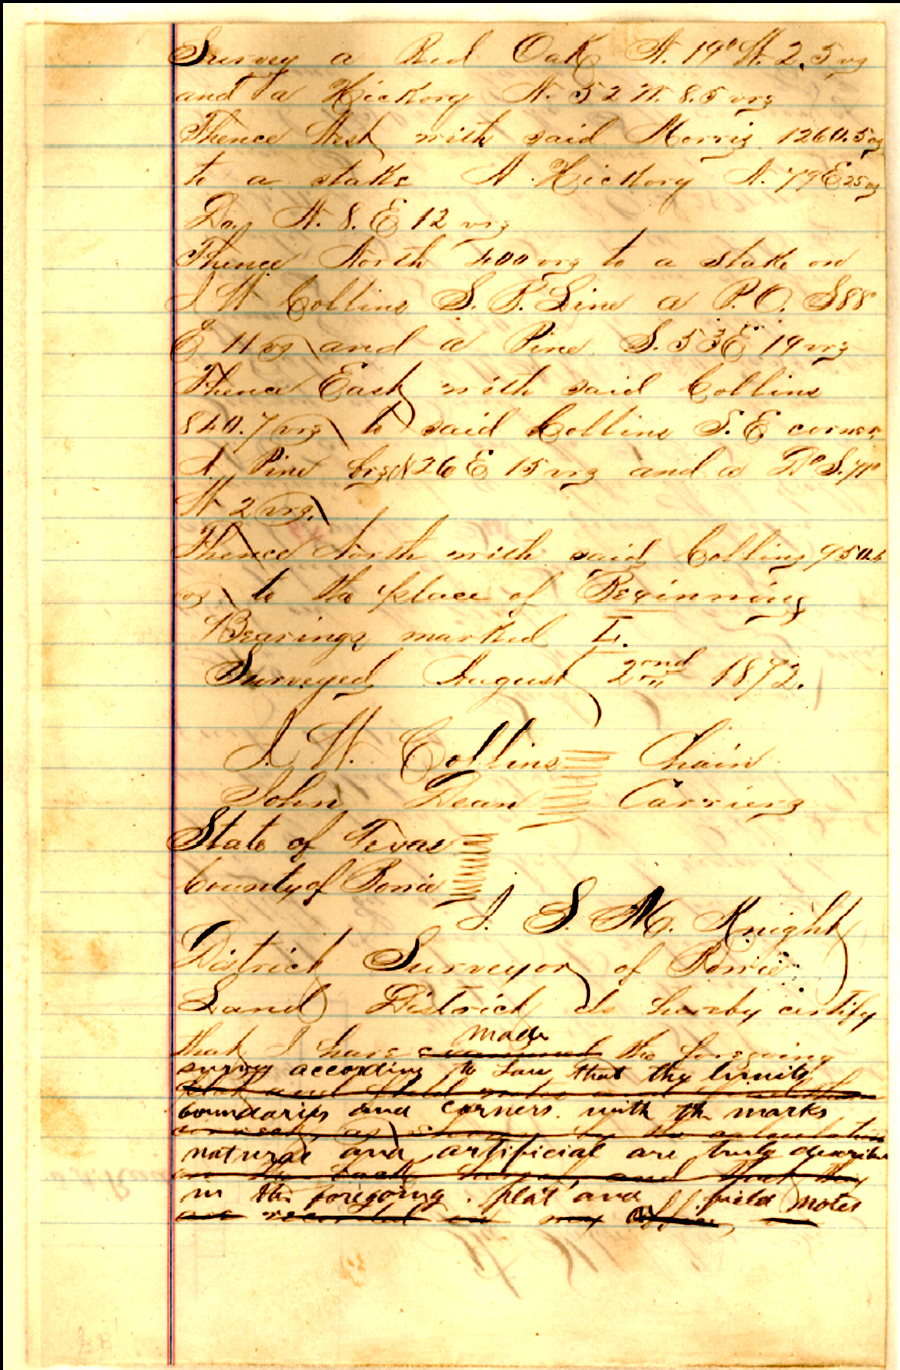 Survey a Red Oak N. 19° W. 2.5 vrs
and a Hickory N. 52 W. 8.5 vrs
Thence West with said Morris 1260.5 vrs
to a stake A Hickory N. 79 E 25 vrs
Do. N. 8. E 12 vrs
Thence North 400 vrs to a stake on
J. W Collins S. B. Line a P.O. S88
E 11 vrs and a Pine S. 53 E 19 vrs
Thence East with said Collins
840.7 vrs to said Collins S. E corner
A Pine brs N 26 E 15 vrs and a Do S.
W 2 vrs.
Thence North with said Collins 950
vrs to the place of Beginning
Bearings marked L.
Surveyed August 2nd 1872.
J. W. Collins Chain
John Dean Carriers
State of Texas
County of Bowie
I. S. M. Knight
District Surveyor of Bowie
Land District do hereby certify
made
that I have examined the foregoing
survey according to Law that the limits
plat and field notes
boundaries and corners. with the marks
correct, as shown by the calculation
natural and artificial are truly describe
on the back hereof, and that they
in the foregoing. plat and field notes
are recorded in my office,